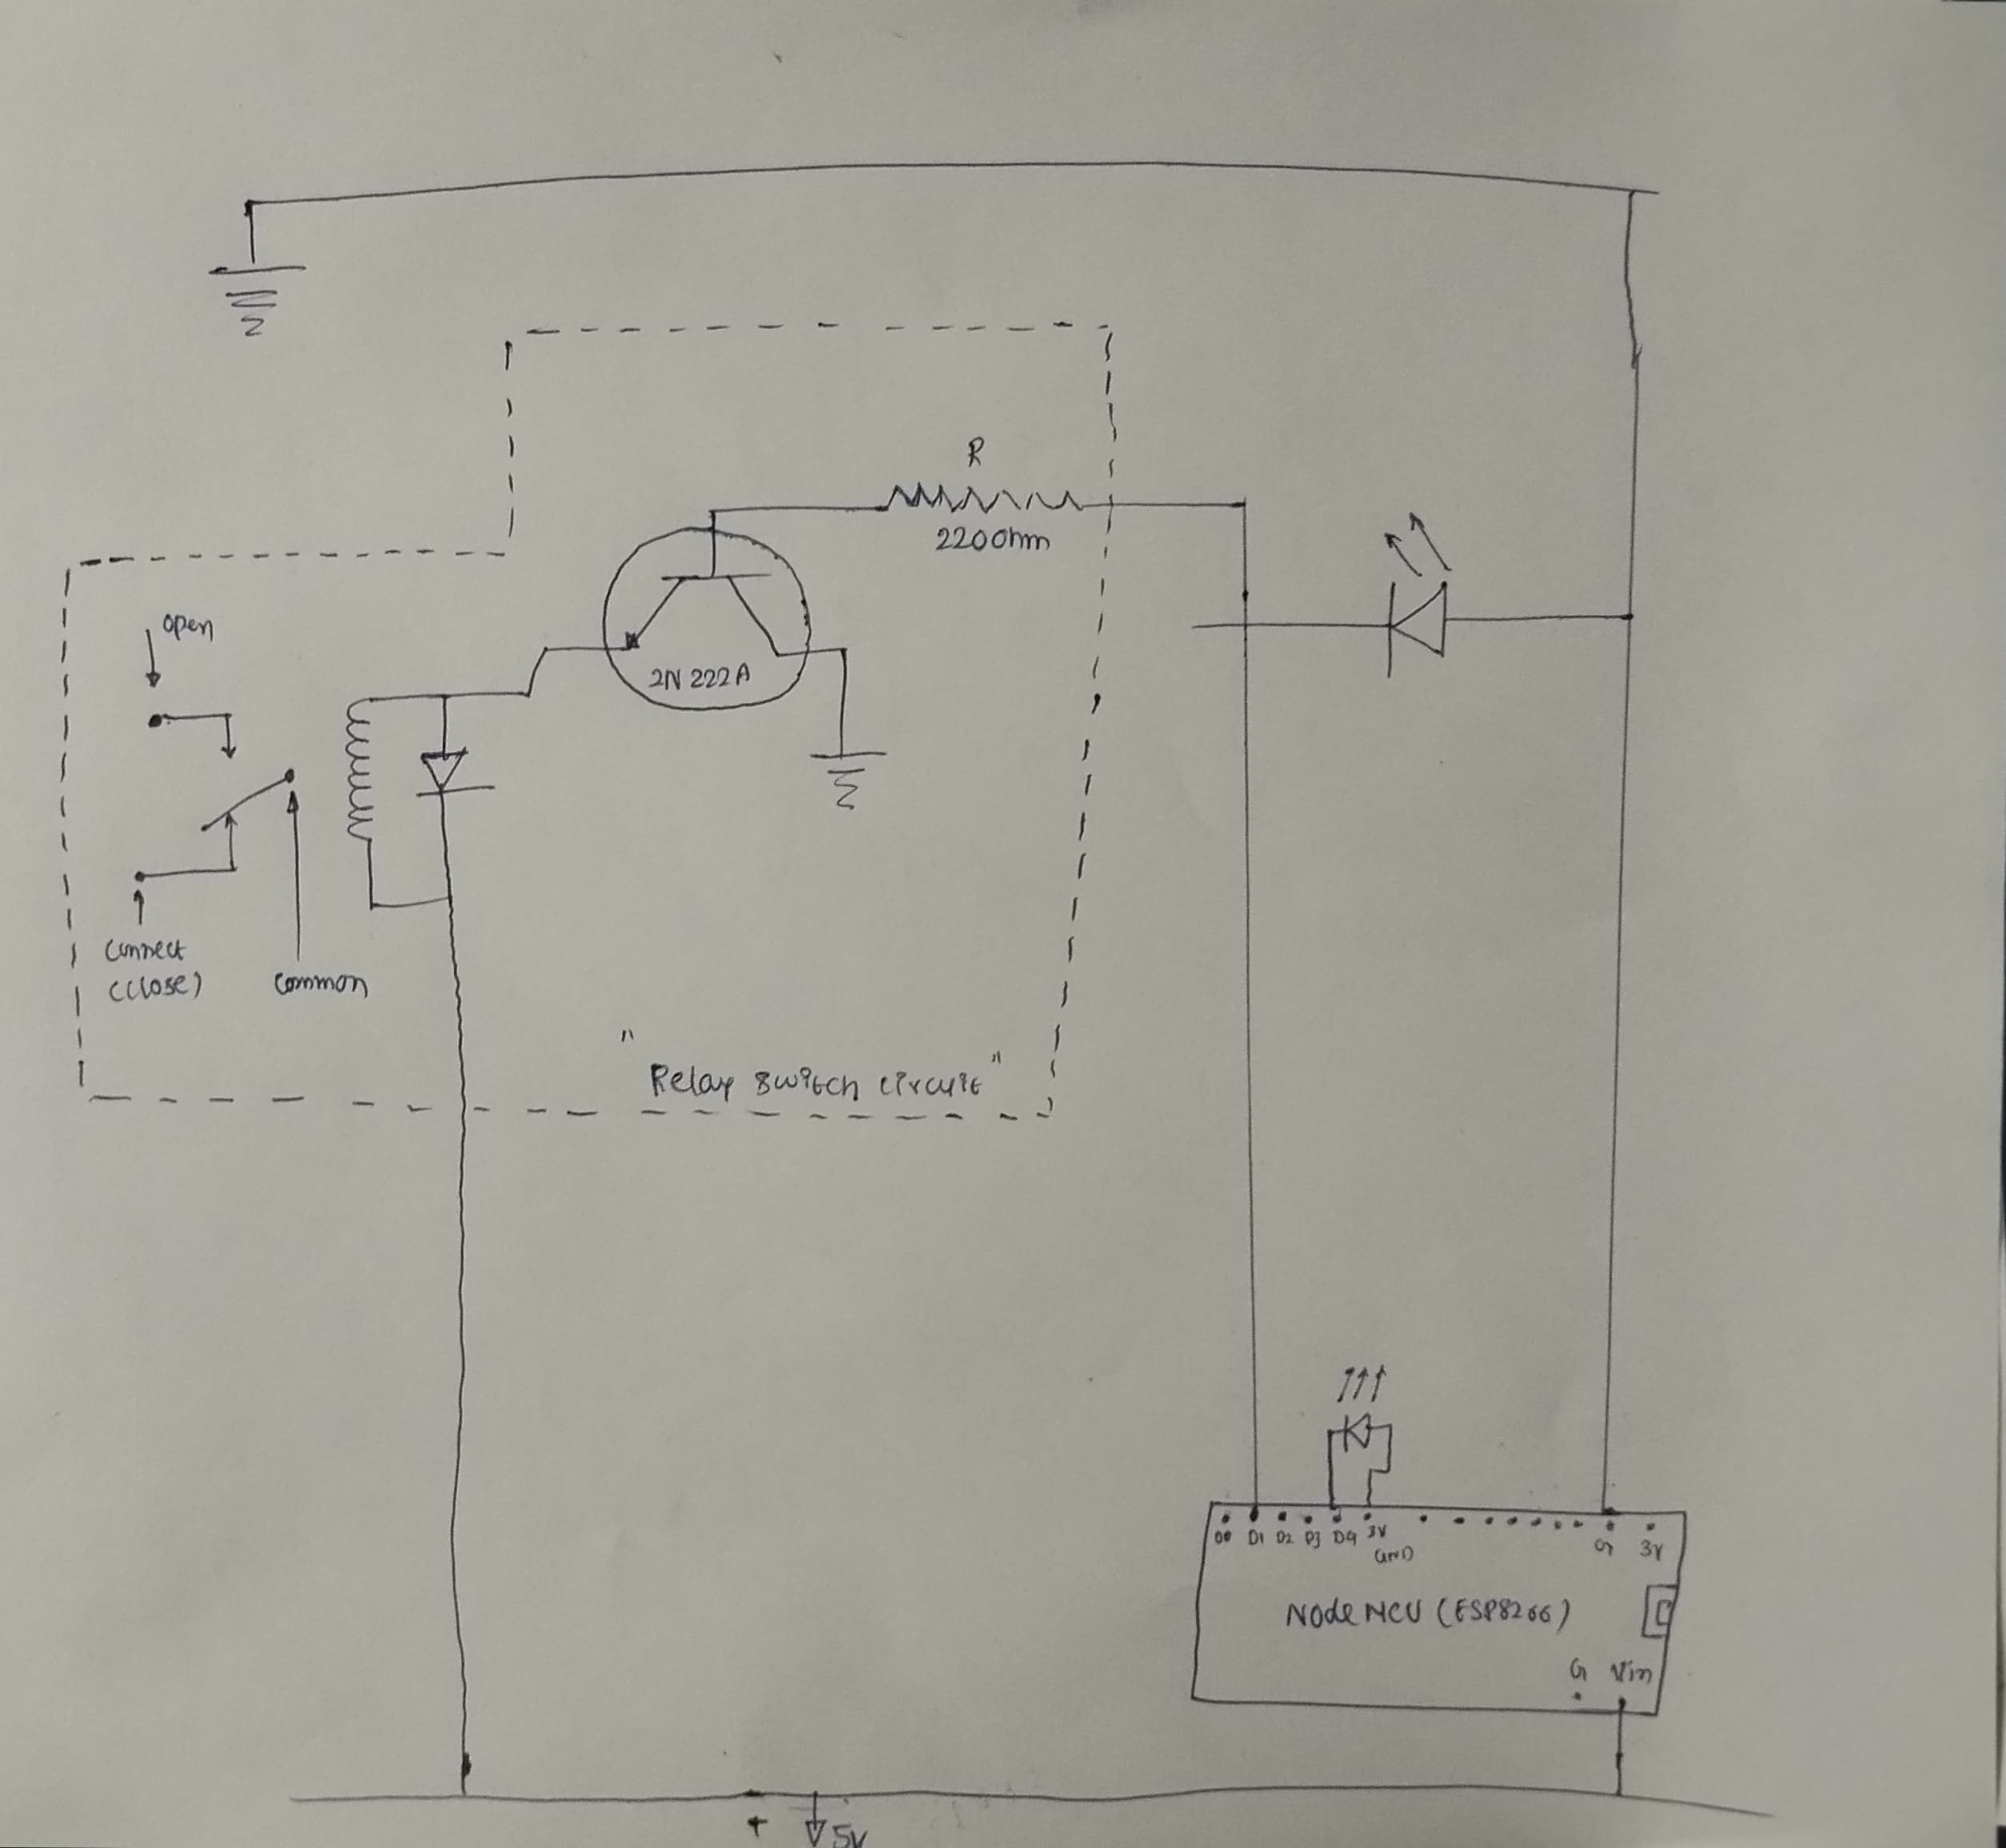 R
220 Ohm
open
2N 222A
Connect
(Close)
Common
"Relay switch circuit"
D0 D1 D2 D3 D4 3V G 3V
GND
Node MCU (ESP8266)
G Vin
+ 5V